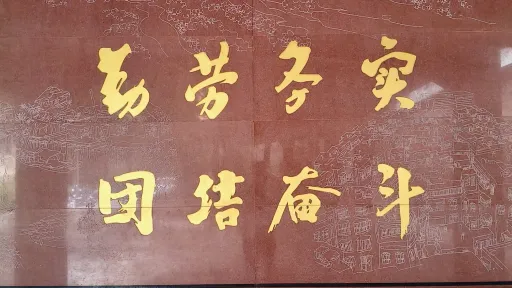 勤劳务实
团结奋斗